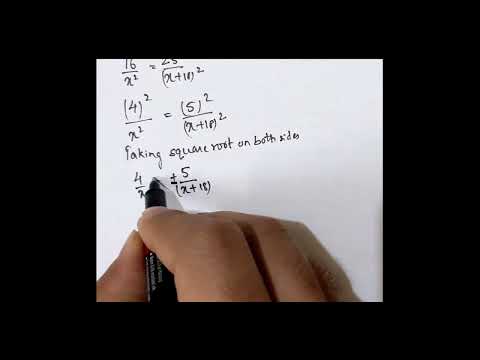 16/x² = 25/(x+18)²
(4)²/x² = (5)²/(x+18)²
Taking square root on both sides
4/x = ± 5/(x+18)